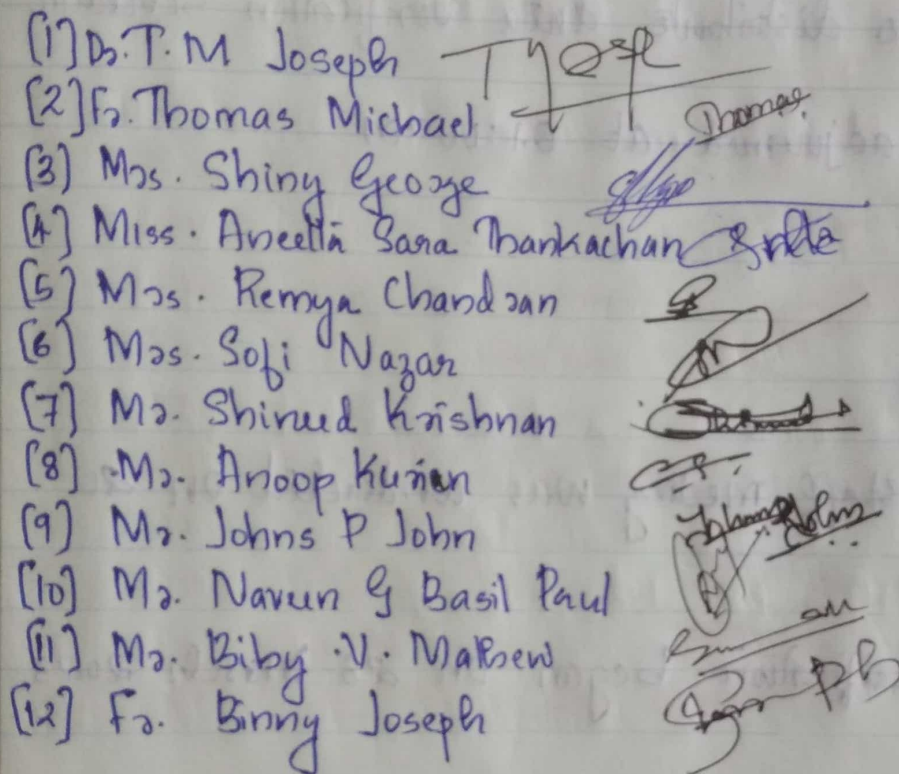 [1] Dr. T. M Joseph
[2] Fr. Thomas Michael Thomas
[3] Mrs. Shiny George
[4] Miss. Aneetta Sara Thankachan
[5] Mrs. Remya Chandran
[6] Mrs. Sofi Nazar
[7] Mr. Shineed Krishnan
[8] Mr. Anoop Kurian
[9] Mr. Johns P John
[10] Mr. Naveen G Basil Paul
[11] Mr. Biby .V. Mathew
[12] Fr. Binny Joseph